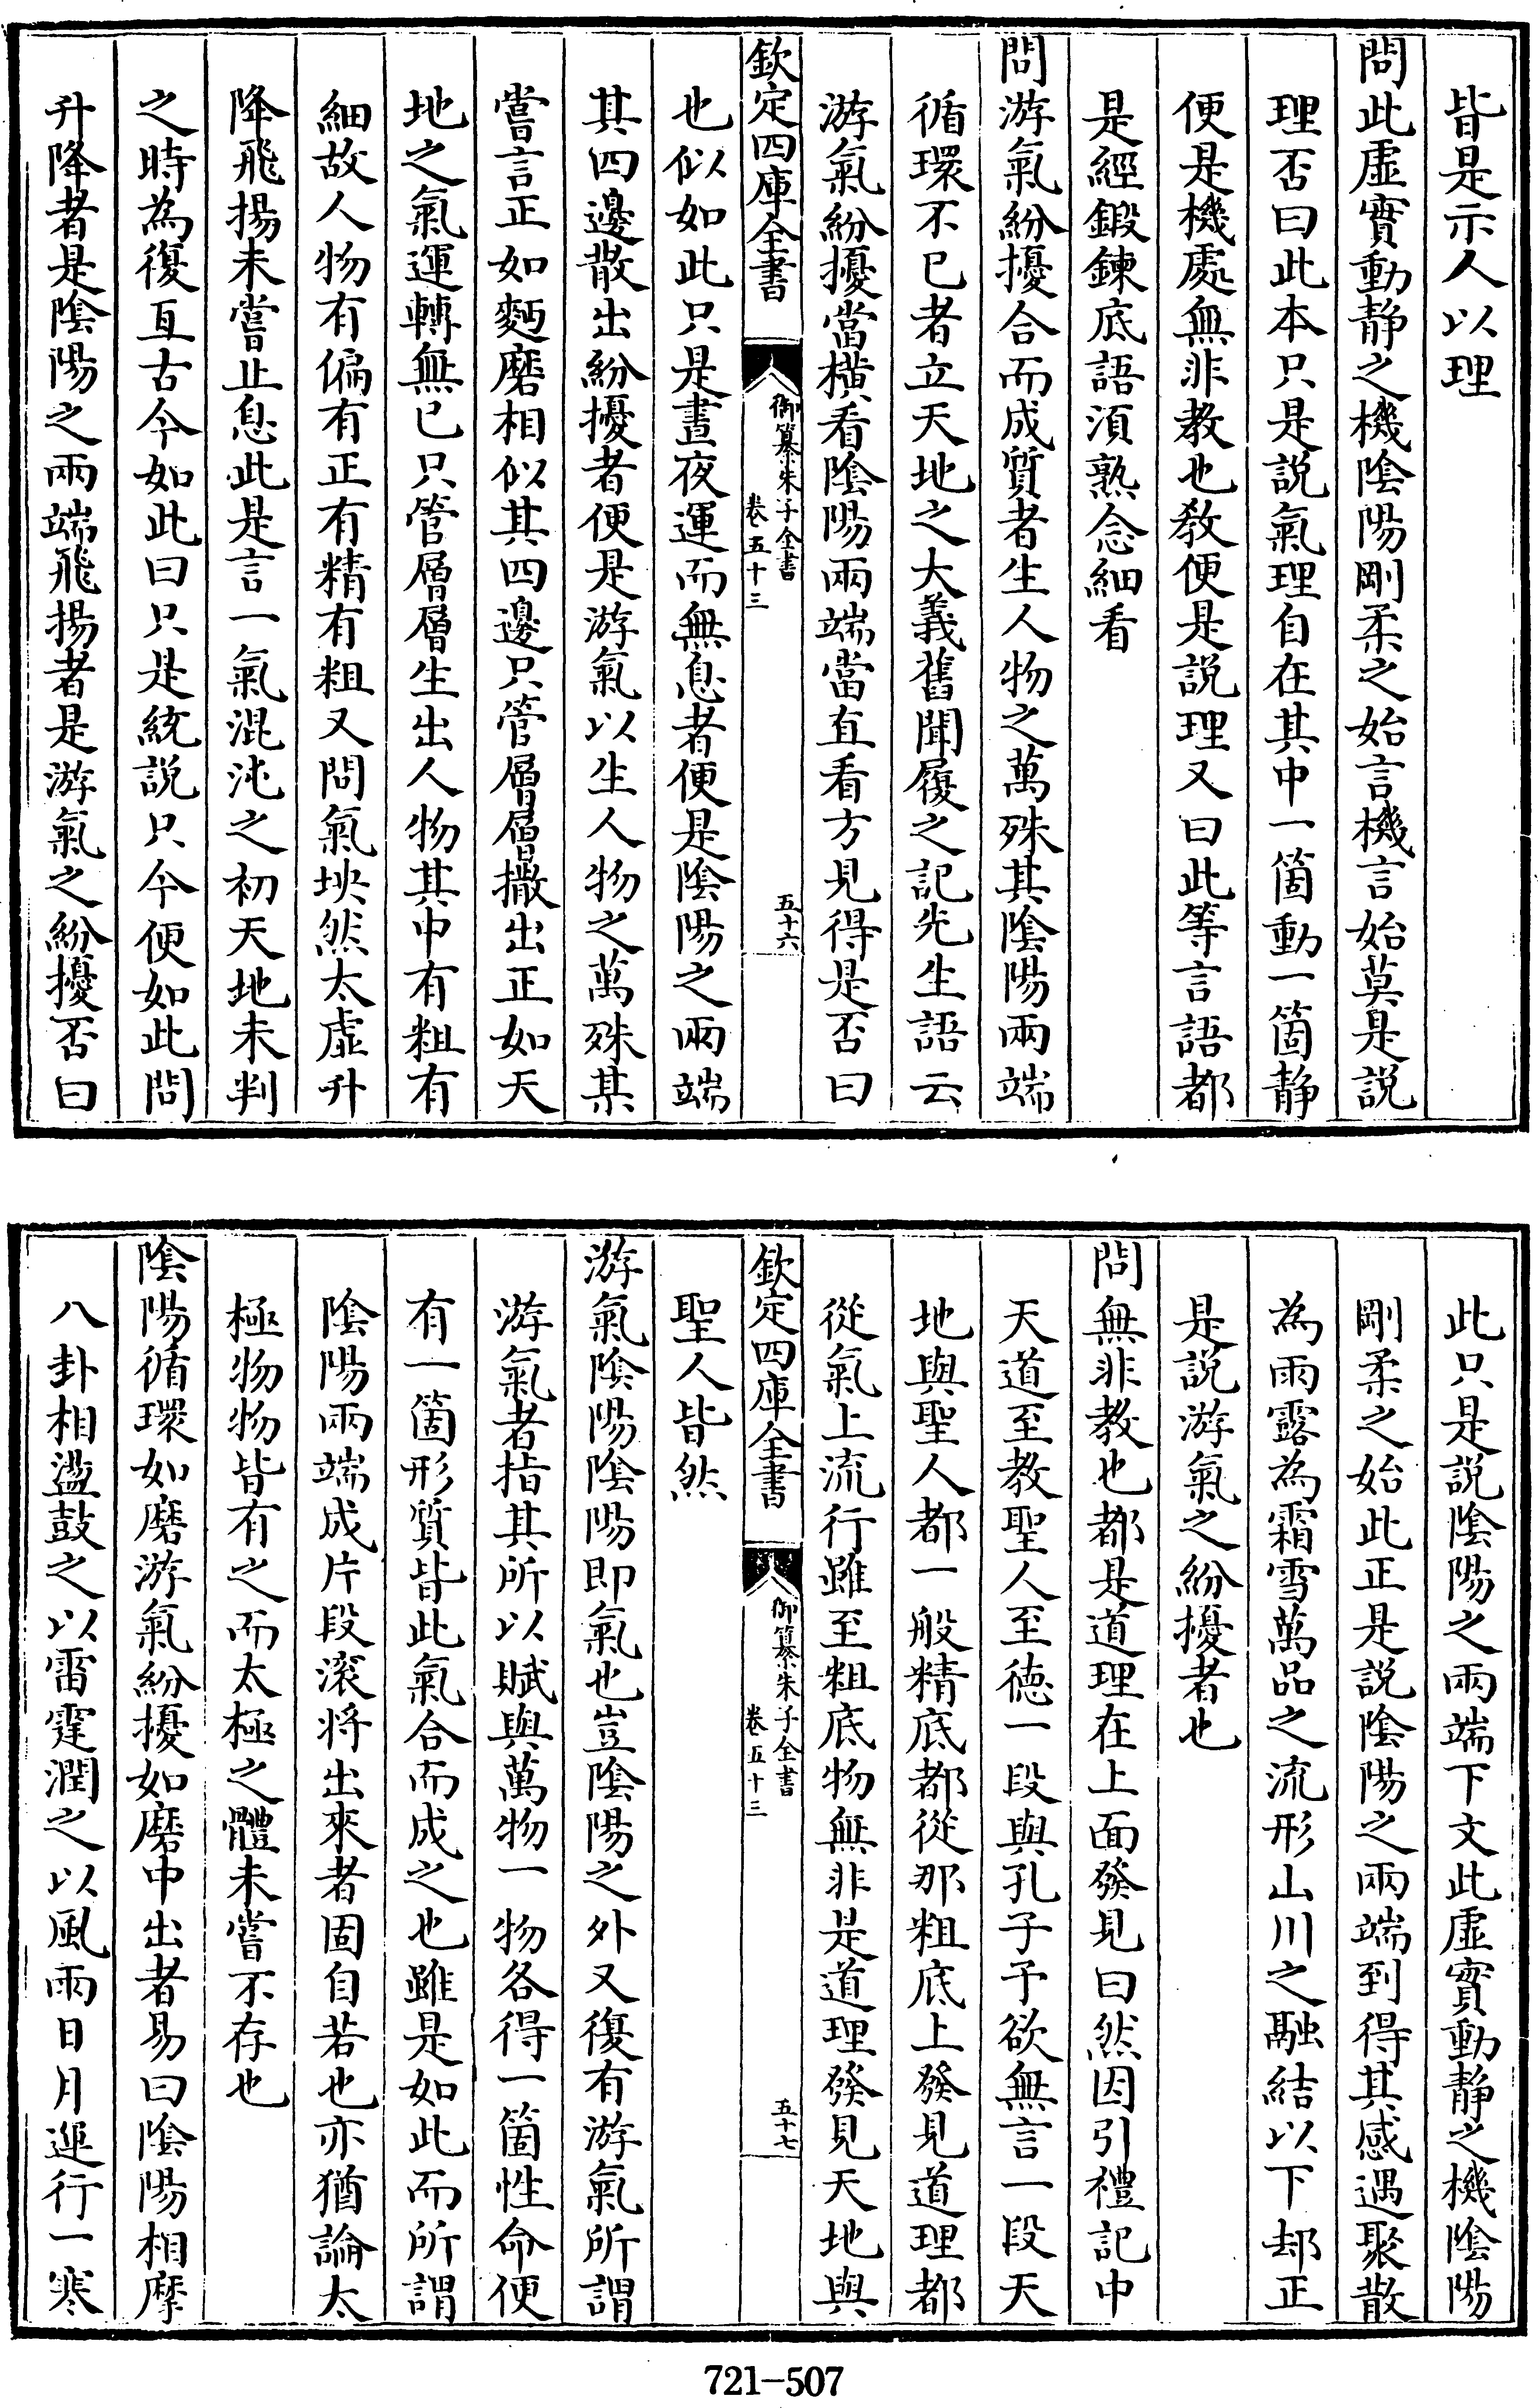 皆是示人以理
問此虛實動静之機陰陽剛柔之始言機言始莫是説
理否曰此本只是説氣理自在其中一箇動一箇静
便是機處無非教也教便是説理又曰此等言語都
是經鍛鍊底語湏熟念細看
問游氣紛擾合而成質者生人物之萬殊其陰陽兩端
循環不已者立天地之大義舊聞履之記先生語云
游氣紛擾當横看陰陽兩端當直看方見得是否曰
欽定四庫全書
御纂朱子全書
卷五十三
五十六
也似如此只是晝夜運而無息者便是陰陽之兩端
其四邊散出紛擾者便是游氣以生人物之萬殊某
嘗言正如麪磨相似其四邊只管層層撒出正如天
地之氣運轉無已只管層層生出人物其中有粗有
細故人物有偏有正有精有粗又問氣坱然太虛升
降飛揚未嘗止息此是言一氣混沌之初天地未判
之時為復亙古今如此曰只是統説只今便如此問
升降者是陰陽之兩端飛揚者是游氣之紛擾否曰
此只是説陰陽之兩端下文此虛實動静之機陰陽
剛柔之始此正是説陰陽之兩端到得其感遇聚散
為雨露為霜雪萬品之流形山川之融結以下却正
是説游氣之紛擾者也
問無非教也都是道理在上面發見曰然因引禮記中
天道至教聖人至徳一段與孔子予欲無言一段天
地與聖人都一般精底都從那粗底上發見道理都
從氣上流行雖至粗底物無非是道理發見天地與
欽定四庫全書
御纂朱子全書
卷五十三
五十七
聖人皆然
游氣陰陽陰陽即氣也豈陰陽之外又復有游氣所謂
游氣者指其所以賦與萬物一物各得一箇性命便
有一箇形質皆此氣合而成之也雖是如此而所謂
陰陽兩端成片段滚将出來者固自若也亦猶論太
極物物皆有之而太極之體未嘗不存也
陰陽循環如磨游氣紛擾如磨中出者易曰陰陽相摩
八卦相盪鼓之以雷霆潤之以風雨日月運行一寒
721-507